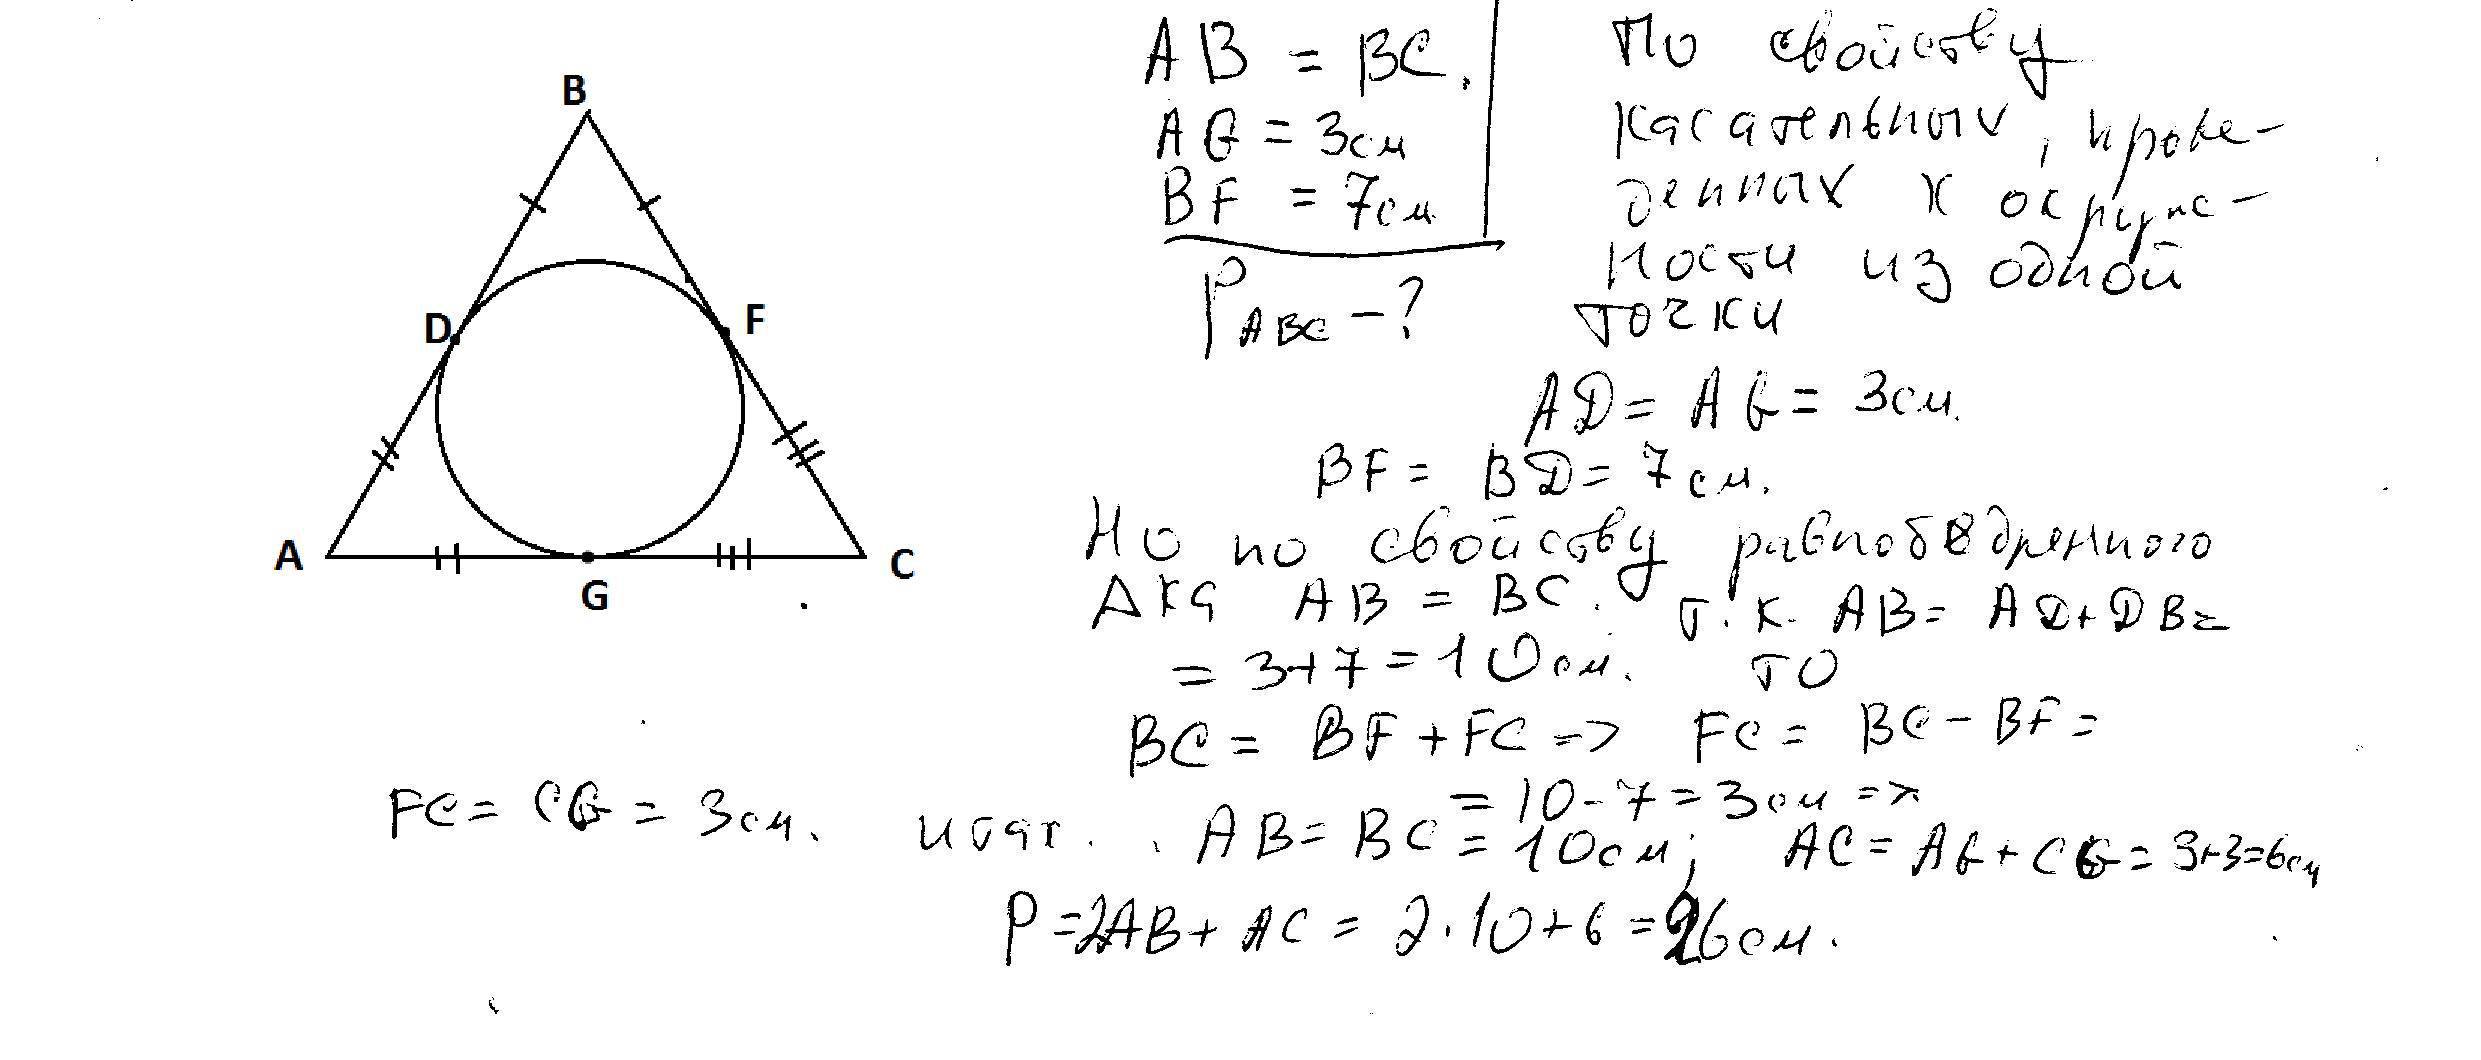 B
D
F
A
G
C
AB = BC.
AG = 3см
BF = 7см
P ABC - ?
По свойству
касательных, прове-
денных к окруж-
ности из одной
точки
AD = AG = 3см.
BF = BD = 7см.
Но по свойству равнобедренного
Δка AB = BC. т.к. AB = AD + DB =
= 3+7 = 10см. то
BC = BF + FC => FC = BC - BF =
= 10 - 7 = 3см =>
FC = CG = 3см. итак. AB = BC = 10см; AC = AG + CG = 3+3=6см
P = 2AB + AC = 2·10 + 6 = 26см.